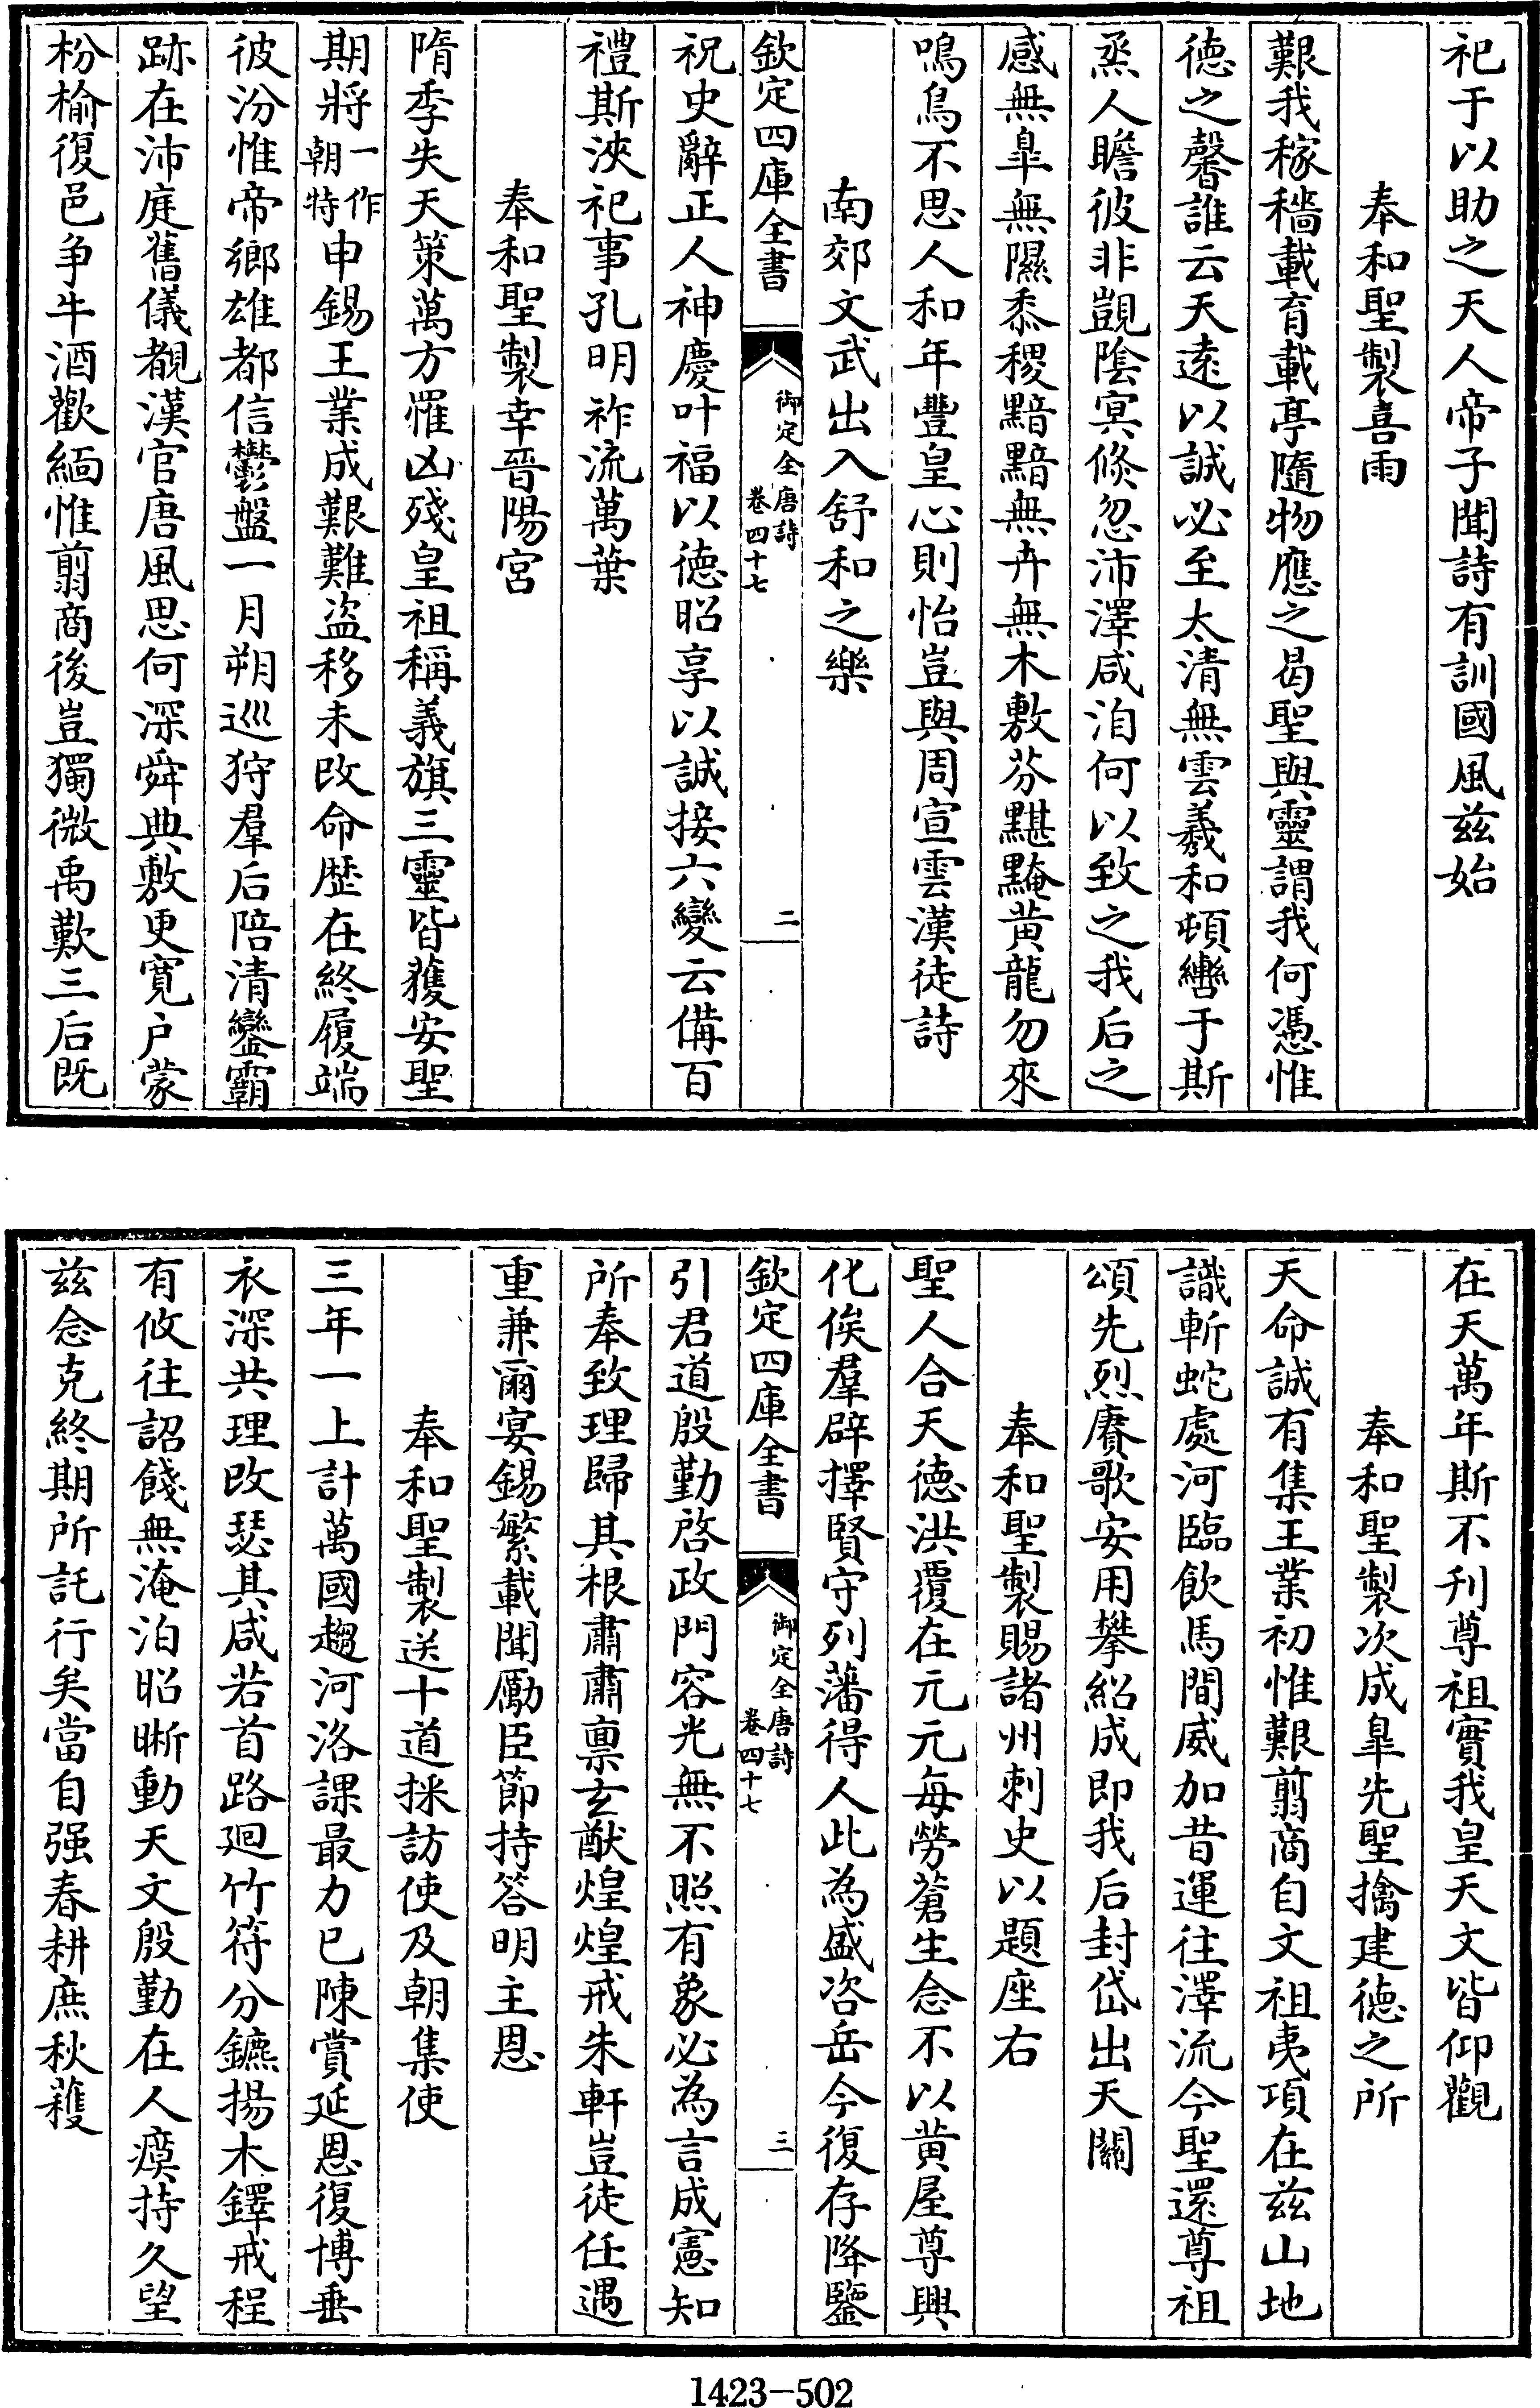 祀于以助之天人帝子聞詩有訓國風兹始
奉和聖製喜雨
艱我稼穡載育載亭隨物應之曷聖與靈謂我何憑惟
德之馨誰云天遠以誠必至太清無雲羲和頓轡于斯
烝人瞻彼非覬陰冥倐忽沛澤咸洎何以致之我后之
感無臯無隰黍稷黯黯無卉無木敷芬黮黤黄龍勿來
鳴鳥不思人和年豐皇心則怡豈與周宣雲漢徒詩
南郊文武出入舒和之樂
欽定四庫全書
御定全唐詩
卷四十七
二
祝史辭正人神慶叶福以德昭享以誠接六變云備百
禮斯浹祀事孔明祚流萬葉
奉和聖製幸晉陽宮
隋季失天策萬方罹凶殘皇祖稱義旗三靈皆獲安聖
期將一作朝特申錫王業成艱難盗移未改命歴在終履端
彼汾惟帝鄉雄都信鬱盤一月朔巡狩羣后陪清鑾霸
跡在沛庭舊儀覩漢官唐風思何深舜典敷更寛户蒙
枌榆復邑争牛酒歡緬惟翦商後豈獨微禹歎三后既
在天萬年斯不刋尊祖實我皇天文皆仰觀
奉和聖製次成臯先聖擒建德之所
天命誠有集王業初惟艱翦商自文祖夷項在兹山地
識斬蛇處河臨飲馬間威加昔運往澤流今聖還尊祖
頌先烈賡歌安用攀紹成即我后封岱出天關
奉和聖製賜諸州刺史以題座右
聖人合天德洪覆在元元每勞蒼生念不以黄屋尊興
化俟羣辟擇賢守列藩得人此為盛咨岳今復存降鑒
欽定四庫全書
御定全唐詩
卷四十七
三
引君道殷勤啓政門容光無不照有象必為言成憲知
所奉致理歸其根肅肅禀玄猷煌煌戒朱軒豈徒任遇
重兼爾宴錫繁載聞勵臣節持答明主恩
奉和聖製送十道採訪使及朝集使
三年一上計萬國趨河洛課最力已陳賞延恩復博垂
衣深共理改瑟其咸若首路迴竹符分鑣揚木鐸戒程
有攸往詔餞無淹泊昭晰動天文殷勤在人瘼持久望
兹念克終期所託行矣當自强春耕庶秋穫
1423-502